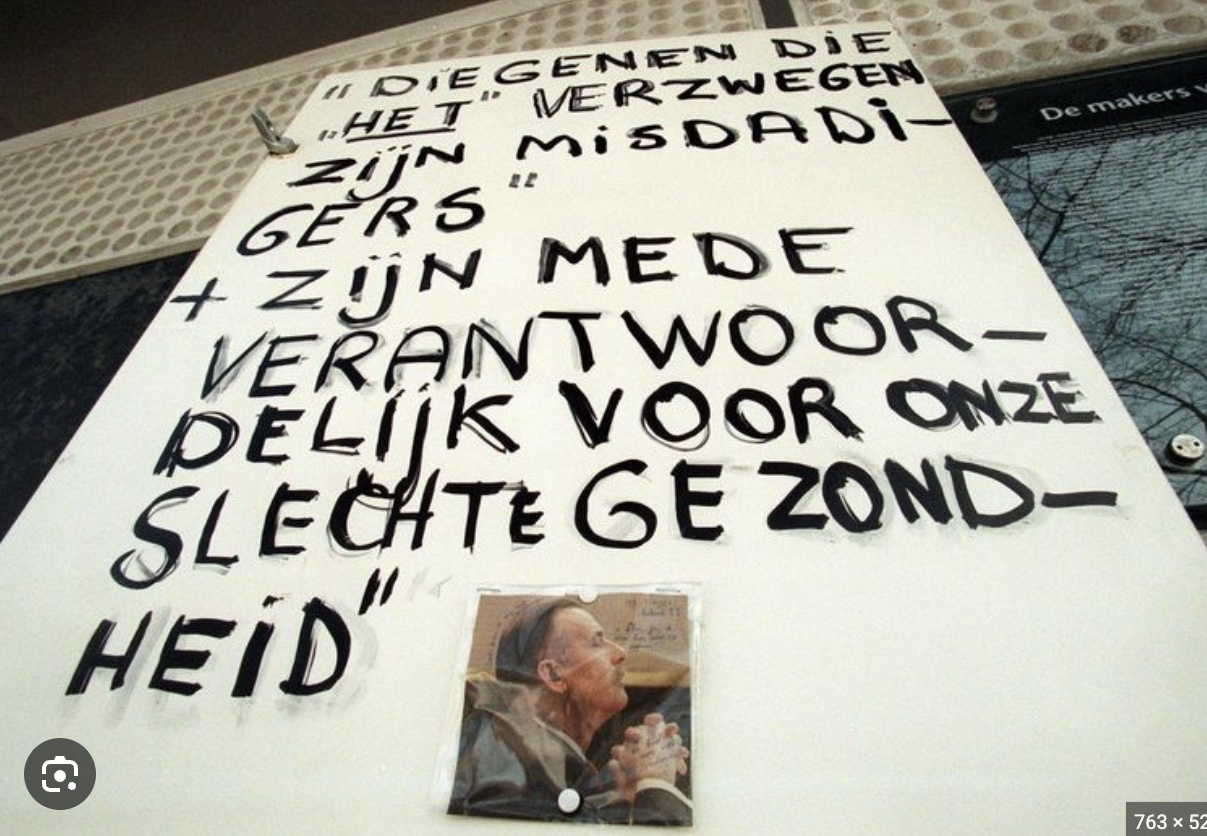 " DiEGENEN DiE
"HET" VERZWEGEN
ZijN MiSDADi-
GERS "
+ ZijN MEDE
VERANTWOOR-
DELijK VOOR ONZE
SLECHTE GEZOND-
HEiD"
De makers
763 × 52